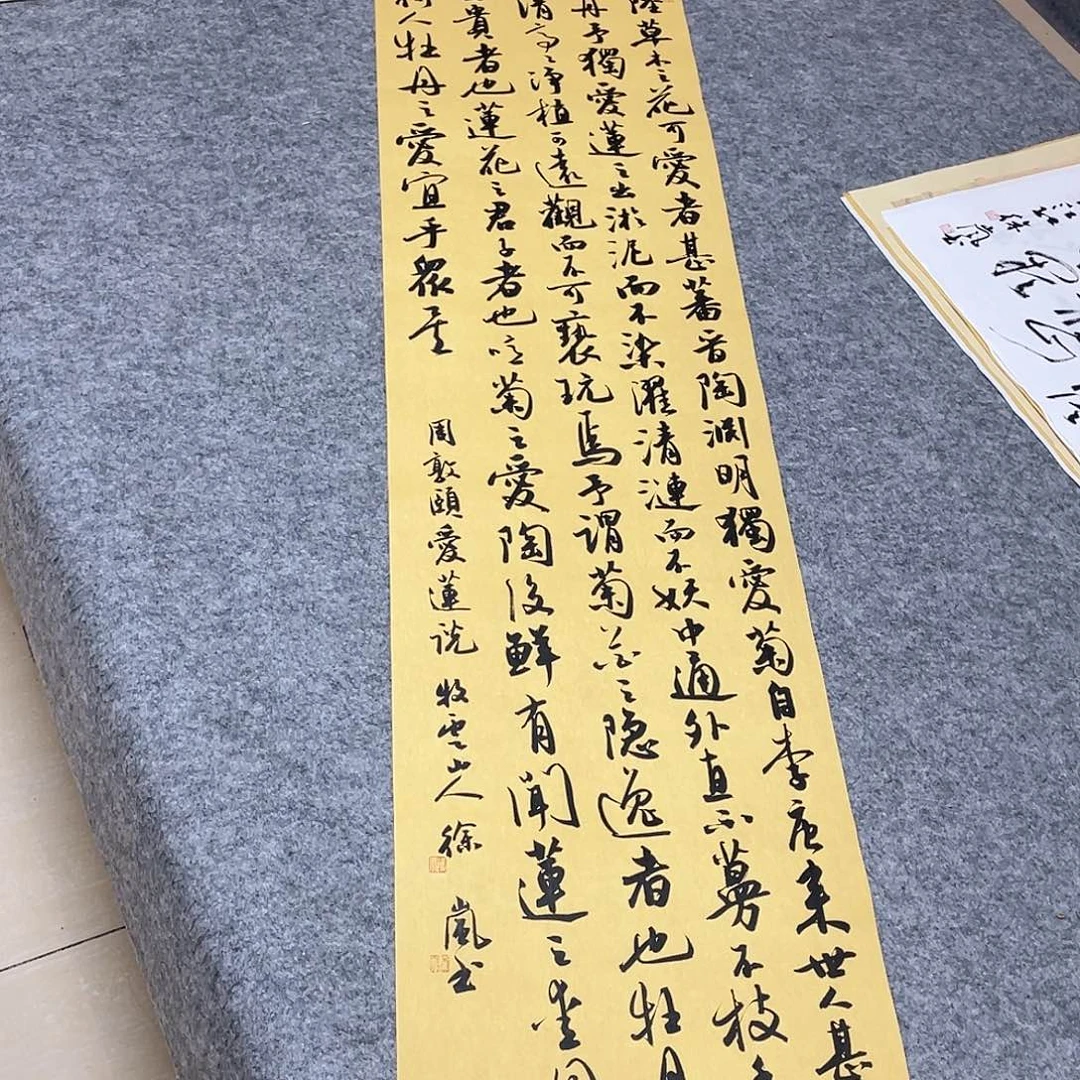 陸草木之花可愛者甚蕃晉陶淵明獨愛菊自李唐来世人甚
丹予獨愛蓮之出淤泥而不染濯清漣而不妖中通外直不蔓不枝
清亭亭淨植可遠觀而不可褻玩焉予謂菊花之隐逸者也牡丹
貴者也蓮花之君子者也噫菊之愛陶後鮮有聞蓮之愛同
何人牡丹之愛宜乎眾矣
周敦頤愛蓮说 牧雲山人 徐嵐书